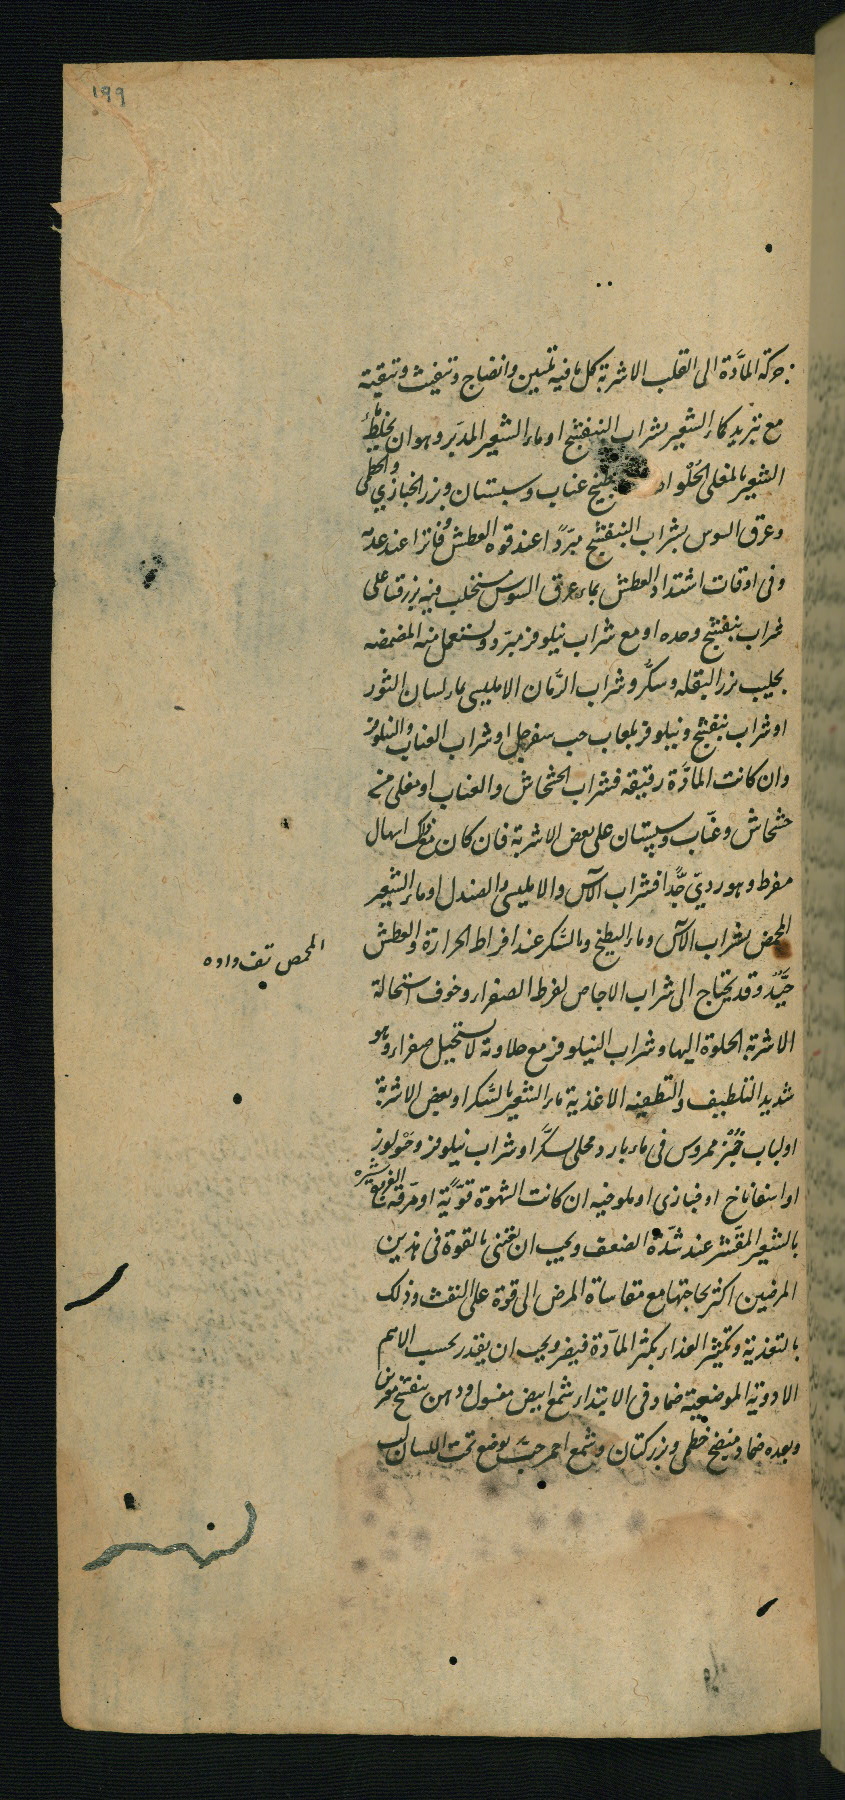 ١٩٩
حركة المادَّة الى القلب الاشربة كل ما فيه تليين وانضاج وتنفيث وتنقية
مع تبريد كماء الشعير بشراب البنفسج او ماء الشعير المدبر وهو ان يخلط ماء
الشعير بالمغلى الحُلو او طبيخ عناب وسبستان وبزر الخبازي والخطمى
وعرق السوس بشراب البنفسج مبرّدًا عند قوه العطش وفاترا عند عدمه
وفى اوقات اشتداد العطش بماء عرق السوس مستحلب فيه بزر قثا على
شراب بنفسج وحده او مع شراب نيلوفر مبرّد ويستعمل منه المضمضه
بحليب بزر البقله وسكّر وشراب الرّمان الامليسى بماء لسان الثور
او شراب بنفسج ونيلوفر بلعاب حب سفرجل او شراب العناب والنيلوفر
وان كانت المادَّة رقيقه فشراب الخشخاش والعناب او مغلى من
خشخاش وعنّاب وسپستان على بعض الاشربة فان كان مع ذلك اسهال
مفرط وهو ردىّ جدًّا فشراب الآس والامليسى والصندل او ماء الشعير
المحمص بشراب الآس وماء البطيخ وبالسّكر عند افراط الحرارة والعطش
المحمص تف داده
جيّدٌ وقد يحتاج الى شراب الاجاص لفرط الصفراء وخوف استحالة
الاشربة الحلوة اليها وشراب النيلوفر مع حلاوته لا يستحيل صفراء وهو
شديد التلطيف والتطفيه الاغذية ماء الشعير بالسّكر او بعض الاشربة
او لباب خُبْز ممروس فى ماء بارد محلى بسكّر او شراب نيلوفر وحو لوز
او اسفاناخ او خبازى او ملوخيه ان كانت الشهوة قويّة او مرقة الفروج
بالشعير المقشر عند شدّة الضعف ويجب ان يعتنى بالقوة فى هذين
المرضين اكثر لحاجتها مع مقاساة المرض الى قوة على النفث وذلك
بالتغذية وتكثير الغذاء يكثر المادّة فيضر ويجب ان يقدر بحسب الاهم
الادوية الموضعية ضماد فى الابتداء شمع ابيض مغسول ودهن بنفسج
وبعده ضماد منضج خطمى وبزر كتان وشمع احمر حبّ يوضع تحت اللسان لب